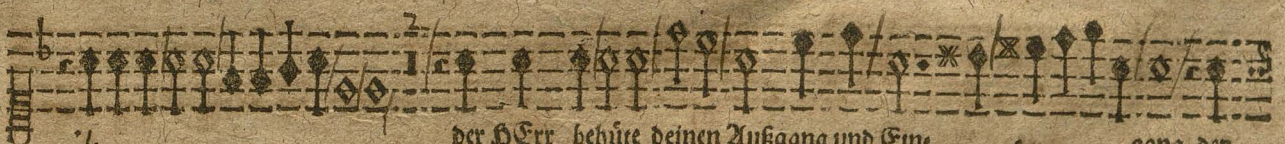 2
der HErr behüte deinen Außgang und Eine gang der